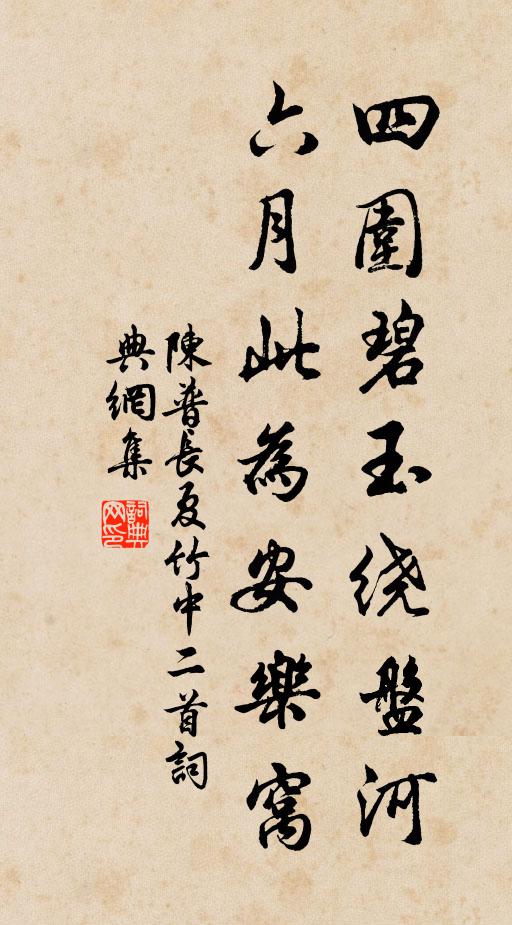 四圍碧玉绕盤河
六月此為安樂窩
陳普長夏竹中二首詞
典網集
詞典網印